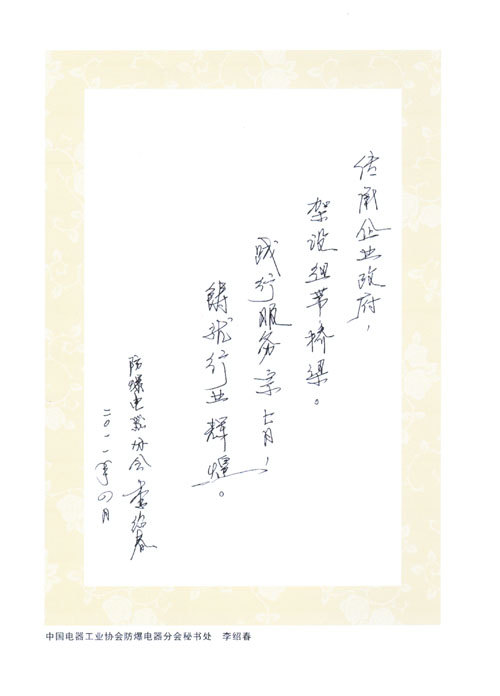 传承企业政府,
架设纽带桥梁。
践行服务宗旨,
铸就行业辉煌。
防爆电器协会 李绍春
二〇一一年四月
中国电器工业协会防爆电器分会秘书处 李绍春